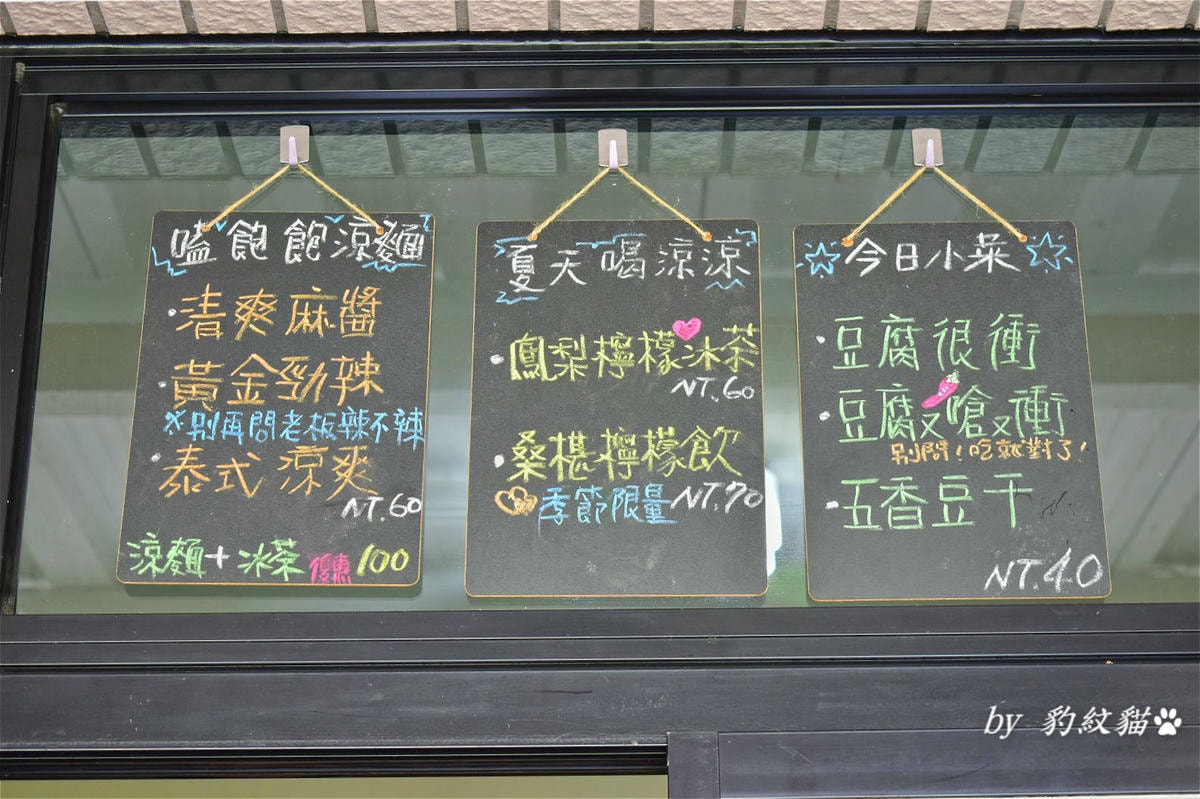 嗑飽飽涼麵
清爽麻醬
黃金勁辣
※別再問老板辣不辣
泰式涼爽
NT.60
涼麵+冰茶優惠100
夏天喝涼涼
鳳梨檸檬冰茶
NT.60
桑椹檸檬飲
季節限量NT.70
今日小菜
豆腐很衝
豆腐又嗆又衝
別問!吃就對了!
五香豆干
NT.40
by 豹紋貓